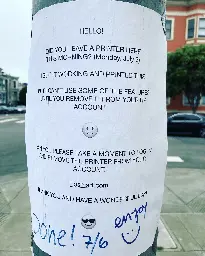 HELLO!
DID YOU LEAVE A PRINTER HERE
THIS MORNING? (Monday, July 3)
IS IT WORKING AND PRINTED THIS
WE CAN'T USE SOME OF THE FEATURES
UNTIL YOU REMOVE IT FROM YOUR
ACCOUNT
PLEASE TAKE A MOMENT TO LOG IN
REMOVE THE PRINTER FROM YOUR
ACCOUNT.
THANK YOU AND HAVE A WONDERFUL DAY!
Done! 7/6 enjoy